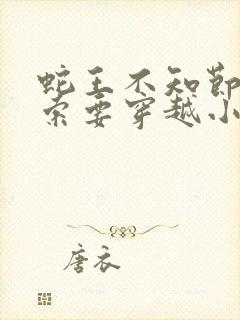 蛇王不知节
索要穿越小
唐衣